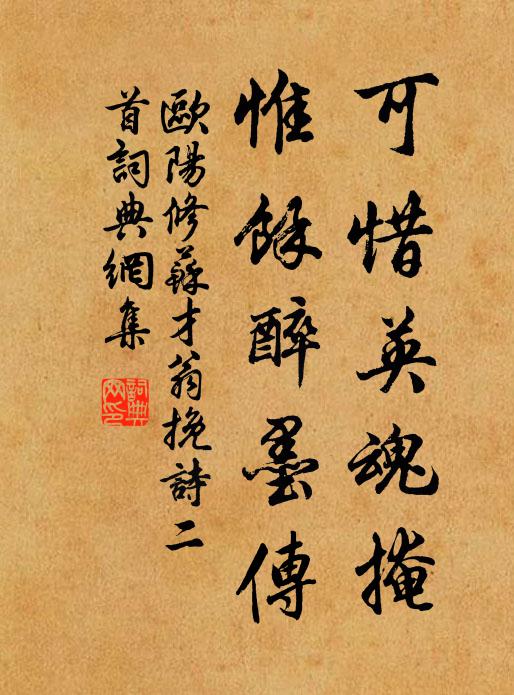 可惜英魂掩
惟餘醉墨傳
歐陽修蘇才翁挽詩二
首詞典網集
詞典
网印